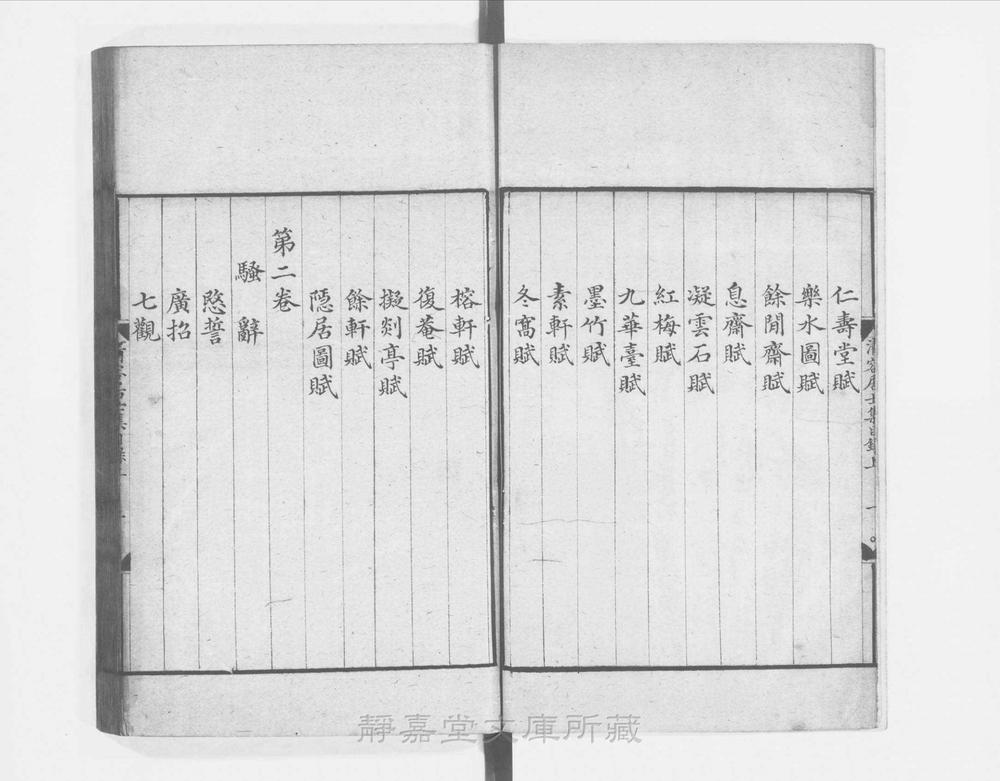 仁壽堂賦
樂水圖賦
餘閒齋賦
息齋賦
凝雲石賦
紅梅賦
九華臺賦
墨竹賦
素軒賦
冬窩賦
榕軒賦
復菴賦
擬剡亭賦
餘軒賦
隱居圖賦
第二卷
騷辭
愍誓
廣招
七觀
清容居士集目錄上
靜嘉堂文庫所藏